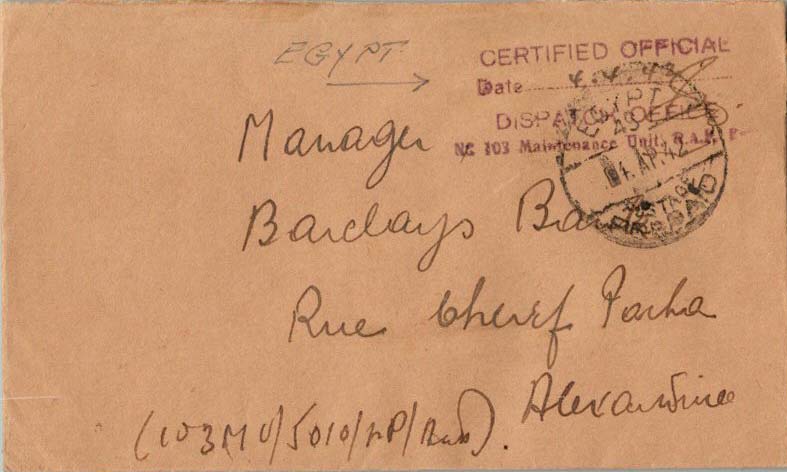 EGYPT
CERTIFIED OFFICIAL
Date 4.4.42
DISPATCH OFFICE
No 103 Maintenance Unit, R.A.F.
EGYPT
4 AP. 42
POSTAGE
PREPAID
Manager
Barclays Ba
Rue Cherif Pacha
Alexandrie
(103MU/5010/